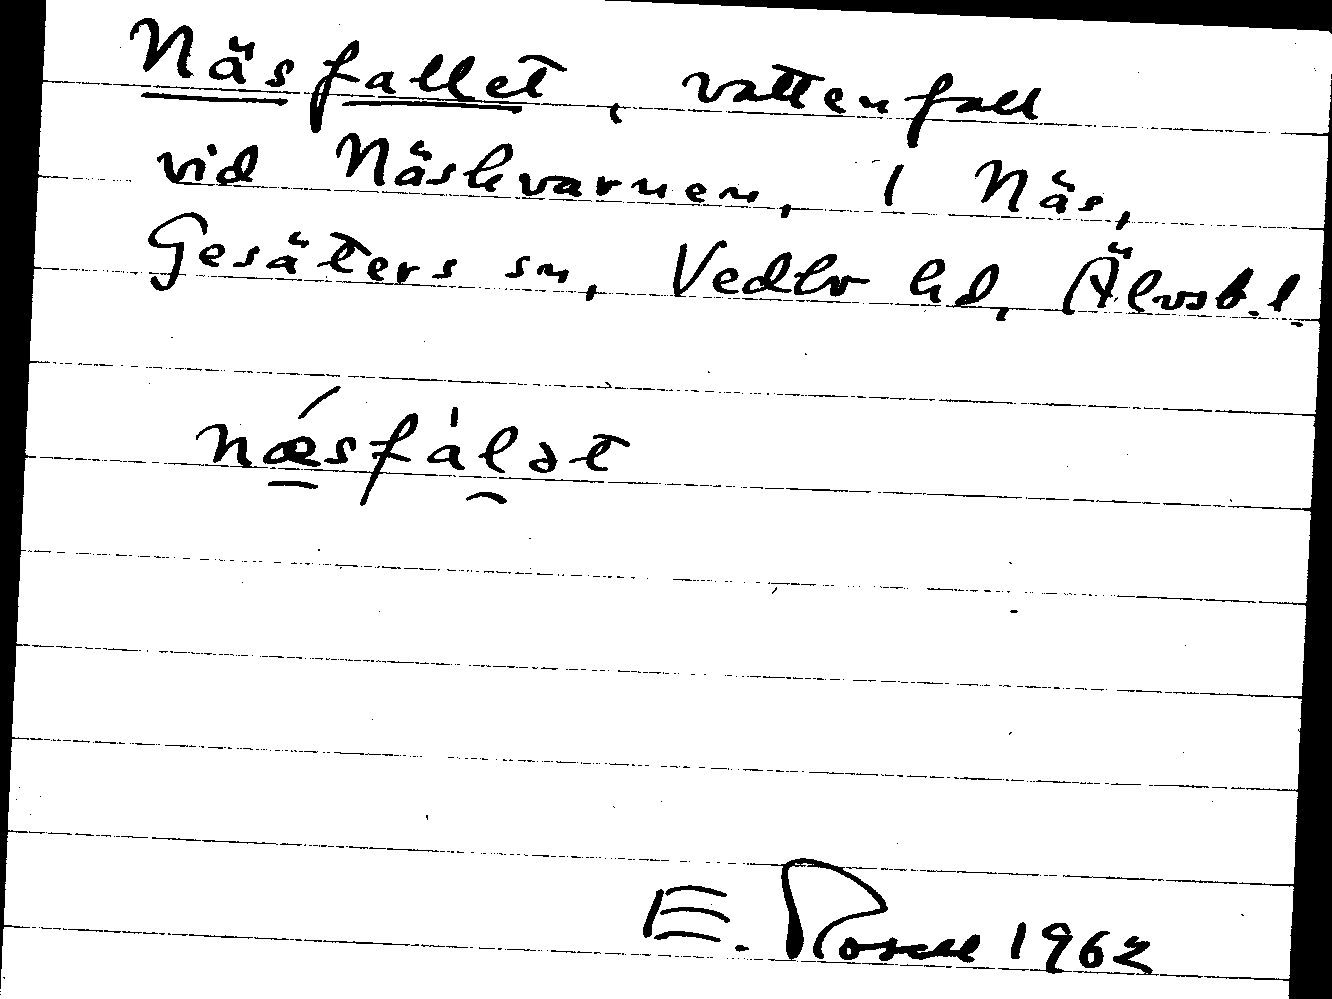 Näsfallet, vattenfall
vid Näskvarnen, i Näs,
Gesäters sn, Vedbo hd, Älvsb. l.
nǽ̲sfàl̮ət
E. Rosell 1962